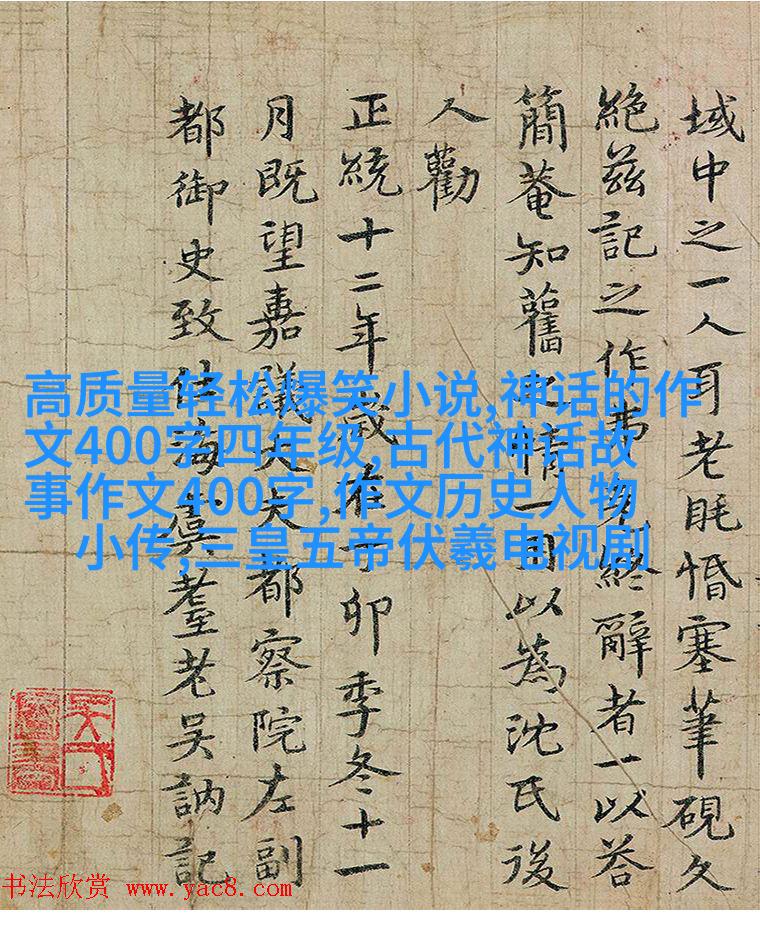 域中之一人耳老眊惛塞筆硯久
絕茲記之作弗克終辭者一以荅
簡菴知舊之情一以為沈氏後
人勸
正統十二年歲在丁卯季冬十一
月既望嘉議大夫都察院左副
都御史致仕海虞耋老吳訥記
高质量轻松爆笑小说,神话的作
文400字四年级,古代神话故
事作文400字,作文历史人物
小传,三皇五帝伏羲电视剧
书法欣赏 www.yac8.com